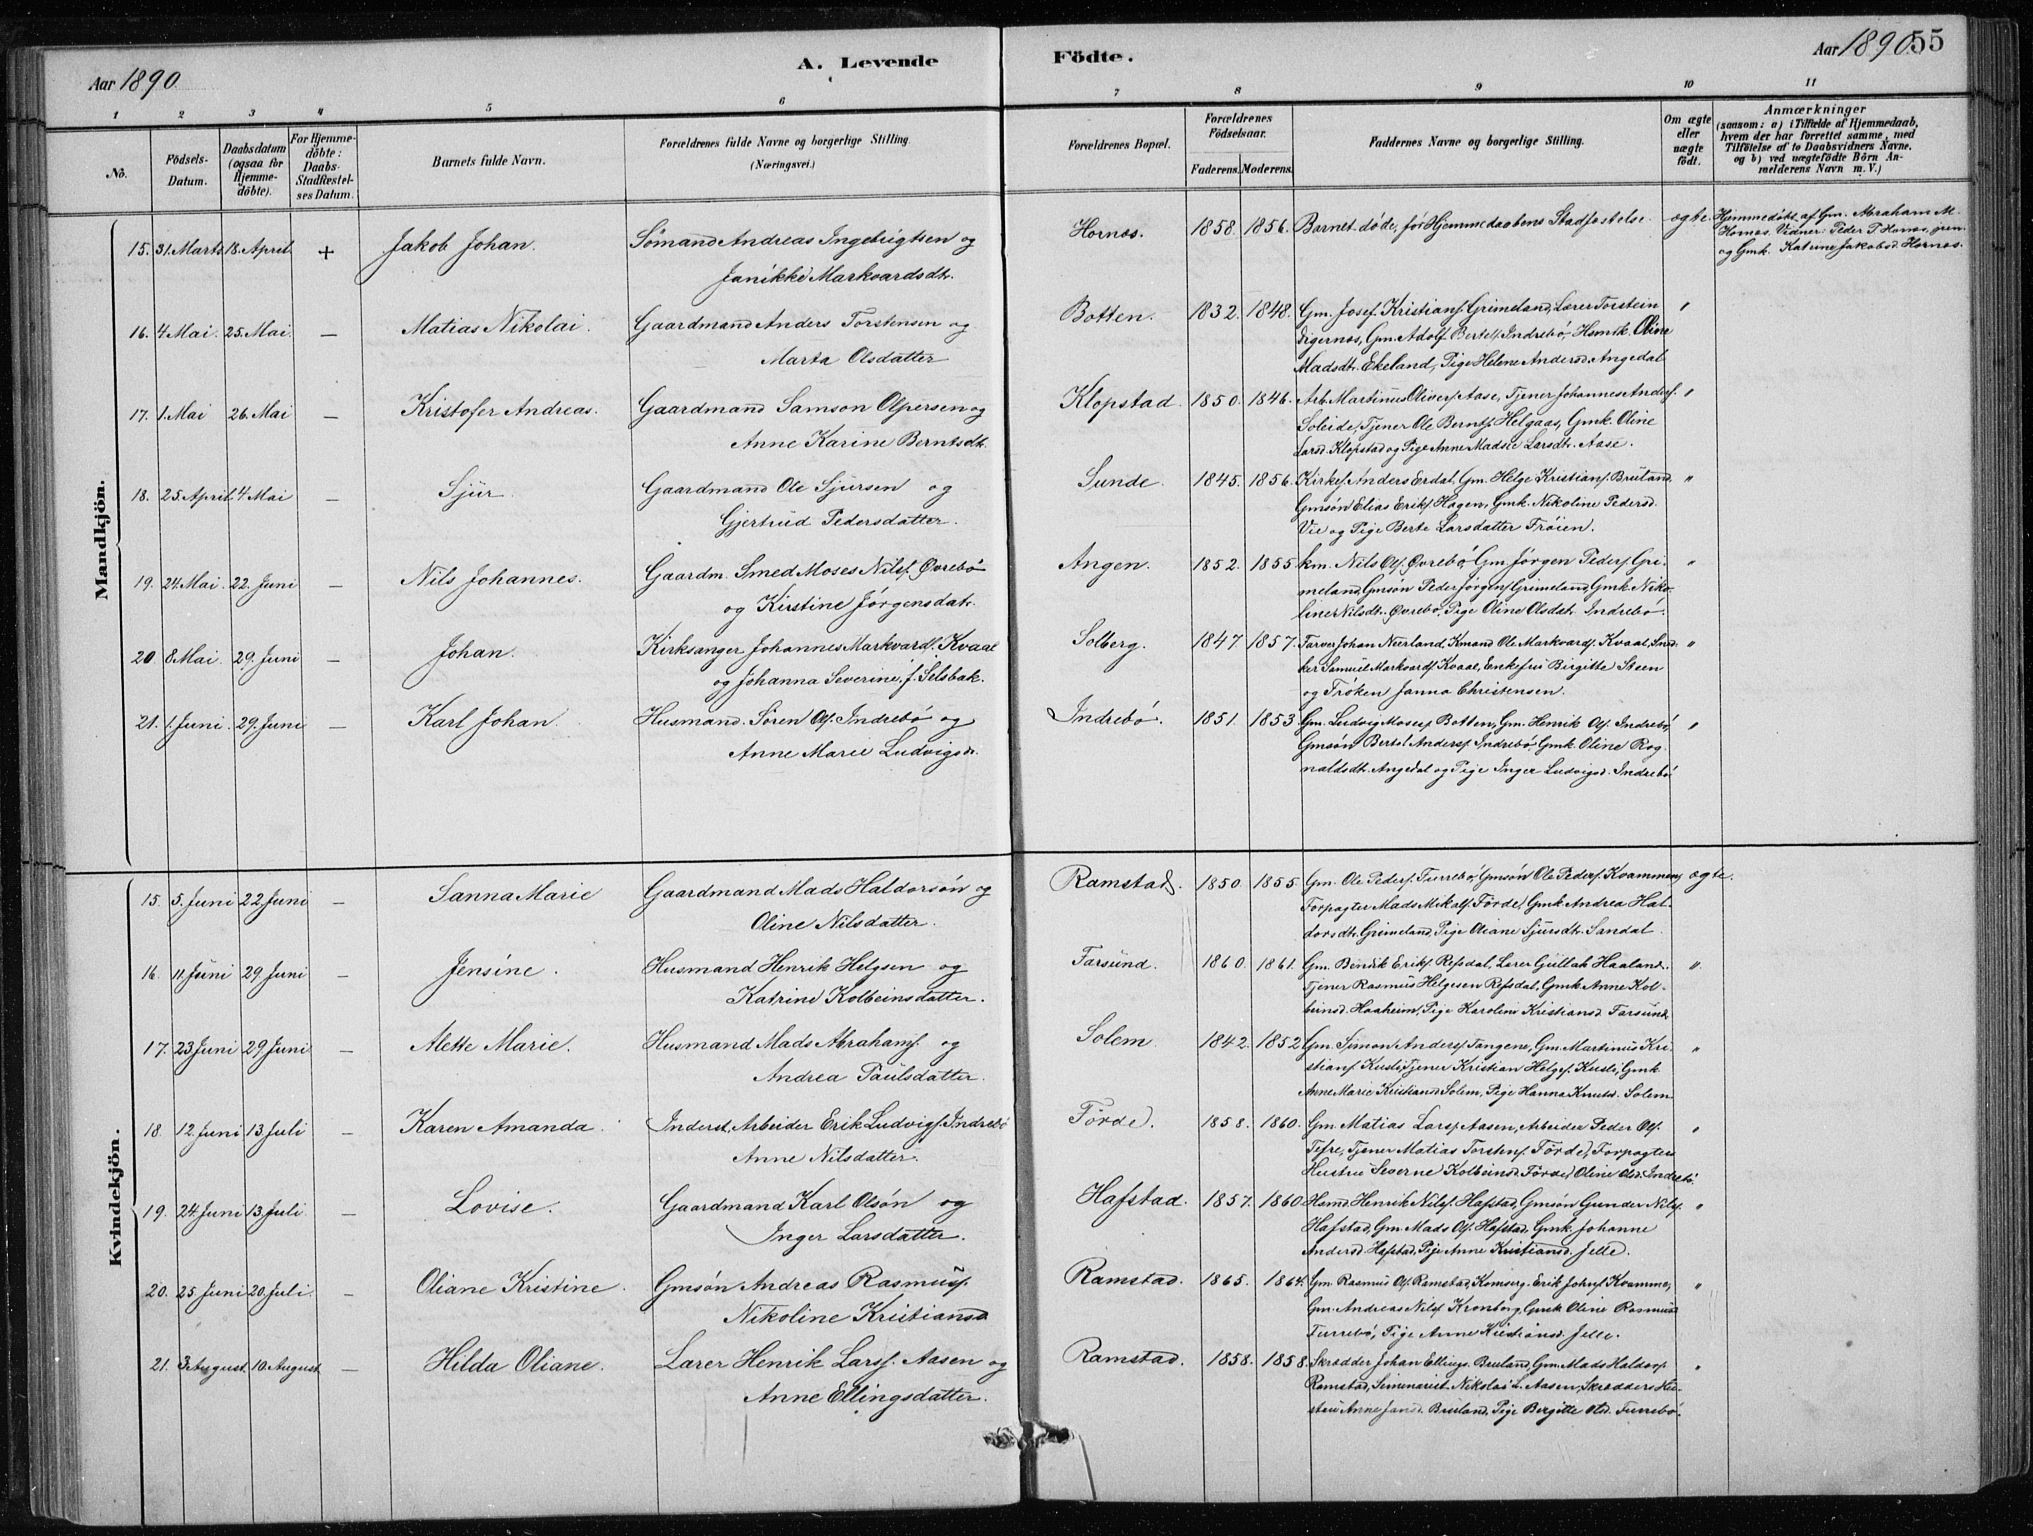 Aar 1890
A. Levende
Födte.
Aar 1890
55
1 2 3 4 5 6 7 8 9 10 11
No.
Födsels-
Datum.
Daabsdatum
(ogsaa for
Hjemme-
döbte).
For Hjemme-
döbte:
Daabs-
Stadfæstel-
ses Datum.
Barnets fulde Navn.
Forældrenes fulde Navne og borgerlige Stilling.
(Næringsvei.)
Forældrenes Bopæl.
Forældrenes
Födselsaar.
Faderens. Moderens.
Faddernes Navne og borgerlige Stilling.
Om ægte
eller
uægte
födt.
Anmærkninger
(saasom: a) i Tilfælde af Hjemmedaab,
hvem der har forrettet samme, med
Tilföielse af to Daabsvidners Navne,
og b) ved uægtefödte Börn An-
melderens Navn m. V.)
Mandkjön.
15. 31 Marts 18. April. + Jakob Johan. Sømand Andreas Ingebrigtsen og
Janikke Markvardsdt.
Hornæs. 1858. 1856. Barnet døde, før Hjemmedaabens Stadfæstelse. ægte.
Hjemmedøbt af Gm. Abraham M.
Hornæs. Vidner: Peder T. Hornæs,
og Gmk. Katrine Jakobsd. Hornæs.
16. 4 Mai. 25. Mai. — Matias Nikolai. Gaardmand Anders Torstensen og
Marta Olsdatter
Botten. 1832. 1848. Gm. Josef Kristians. Grimeland, Lærer Torstein "
Digernæs, Gm. Adolf Bertels. Indrebø, Oline
Madsdt. Ekeland, Pige Helene Andersd. Angedal
17. 1. Mai 26. Mai — Kristofer Andreas. Gaardmand Samson Olpersen og
Anne Karine Berntsdt.
Klopstad 1850. 1846. Arb. Martinus Olivers. Aase, Tjener Johannes Anders. "
Soleide, Tjener Ole Bernts. Helgaas, Gmk. Oline
Larsd. Klopstad og Pige Anne Madsie Larsdt. Aase.
18. 25. April. 4 Mai — Sjur. Gaardmand Ole Sjursen og
Gjertrud Pedersdatter.
Sunde. 1845. 1856. Kirkes. Anders Erdal, Gm. Helge Kristians. Bruland, "
Gmsøn Elias Eriks. Hagen, Gmk. Nikoline Pedersd.
Vie og Pige Berte Larsdatter Trøien.
19. 24. Mai. 22. Juni — Nils Johannes. Gaardm. Smed Moses Nils. Øvrebø
og Kirstine Jørgensdatr.
Angen. 1852. 1855. Km. Nils Ols. Øvrebø, Gm. Jørgen Peders. Gri- "
meland, Gmsøn Peder Jørgens. Grimeland, Gmk. Niko-
line Nilsdt. Øvrebø, Pige Oline Olsdtr. Indrebø.
20 8 Mai. 29. Juni — Johan. Kirksanger Johannes Markvards. Kvaal
og Johanna Severine, f. Selsbak.
Solberg. 1847. 1857. Farver Johan Neerland, Kmand Ole Markvards. Kvaal, Snd- "
ker Samuel Markvards. Kvaal, Enkefru Birgitte Steen
og Frøken Janna Christensen.
21. 1. Juni. 29. Juni — Karl Johan. Husmand. Søren Ols. Indrebø og
Anne Marie Ludvigsd.
Indrebø. 1851. 1853. Gm. Ludvig Moses. Botten, Gm. Henrik Ols. Indrebø, "
Gmsøn Bertel Anders. Indrebø, Gmk. Oline Rog-
naldsdt. Angedal og Pige Inger Ludvigsd. Indrebø
Kvindekjön.
15. 5. Juni 22 Juni — Sanna Marie Gaardmand Mads Haldorsøn og
Oline Nilsdatter.
Ramstad. 1850. 1855. Gm. Ole Peders. Furrebø, Gmsøn Ole Peders. Kvammen, ægte.
Forpagter Mads Mikals. Førde, Gmk. Andrea Hal-
dorsdt. Grimeland, Pige Oliane Sjursdt. Sandal.
16. 11 Juni 29. Juni — Jensine. Husmand Henrik Helgsen og
Katrine Kolbeinsdatter.
Farsund. 1860. 1861. Gm. Bendik Eriks. Refsdal, Lærer Gullak Haaland, "
Tjener Rasmus Helgesen Refsdal, Gmk. Anne Kol-
beinsd. Haaheim, Pige Karoline Kristiansd. Farsund.
17. 23 Juni 29. Juni — Alette Marie. Husmand Mads Abrahams. og
Andrea Paulsdatter.
Solem. 1842. 1852. Gm. Simon Anders. Tangene, Gm. Martinus Kri- "
stians. Kusli, Tjener Kristian Helges. Kusli, Gmk.
Anne Marie Kristiansd. Solem, Pige Hanna Knutsd. Solem
18. 12. Juni 13. Juli — Karen Amanda. Inderst, Arbeider Erik Ludvigs. Indrebø
Anne Nilsdatter.
Førde. 1858. 1860. Gm. Matias Lars. Aasen, Arbeider Peder Ols. "
Tefre, Tjener Matias Torstens. Førde, Forpagters
Hustru Severine Kolbeinsd. Førde, Oline Olsd. Indrebø
19. 24. Juni 13. Juli — Lovise. Gaardmand Karl Olsøn og
Inger Larsdatter.
Hafstad. 1857. 1860. Henrik Nils. Hafstad, Gmsøn Gunder Nils. "
Hafstad, Gm. Mads Ols. Hafstad, Gmk. Johanne
Andersd. Hafstad, Pige Anne Kristiansd. Jelle.
20. 25 Juni 20. Juli. — Oliane Kristine. Gmsøn Andreas Rasmus.
Nikoline Kristiansd.
Ramstad. 1865. 1864. Gm. Rasmus Ols. Ramstad, Erik Johns. Kvamme, "
Gm. Andreas Nils. Kronborg, Gmk. Oline Rasmusd.
Furrebø, Pige Anne Kristiansd. Jelle.
21. 3. August 10 August — Hilda Oliane. Lærer Henrik Lars. Aasen og
Anne Ellingsdatter.
Ramstad. 1858. 1858. Skrædder Johan Ellings. Bruland, Gm. Mads Haldors. "
Ramstad, Seminarist Nikolai L. Aasen, Skrædders Hu-
stru Anne Jansd. Bruland, Pige Bergitte Olsd. Furrebø.